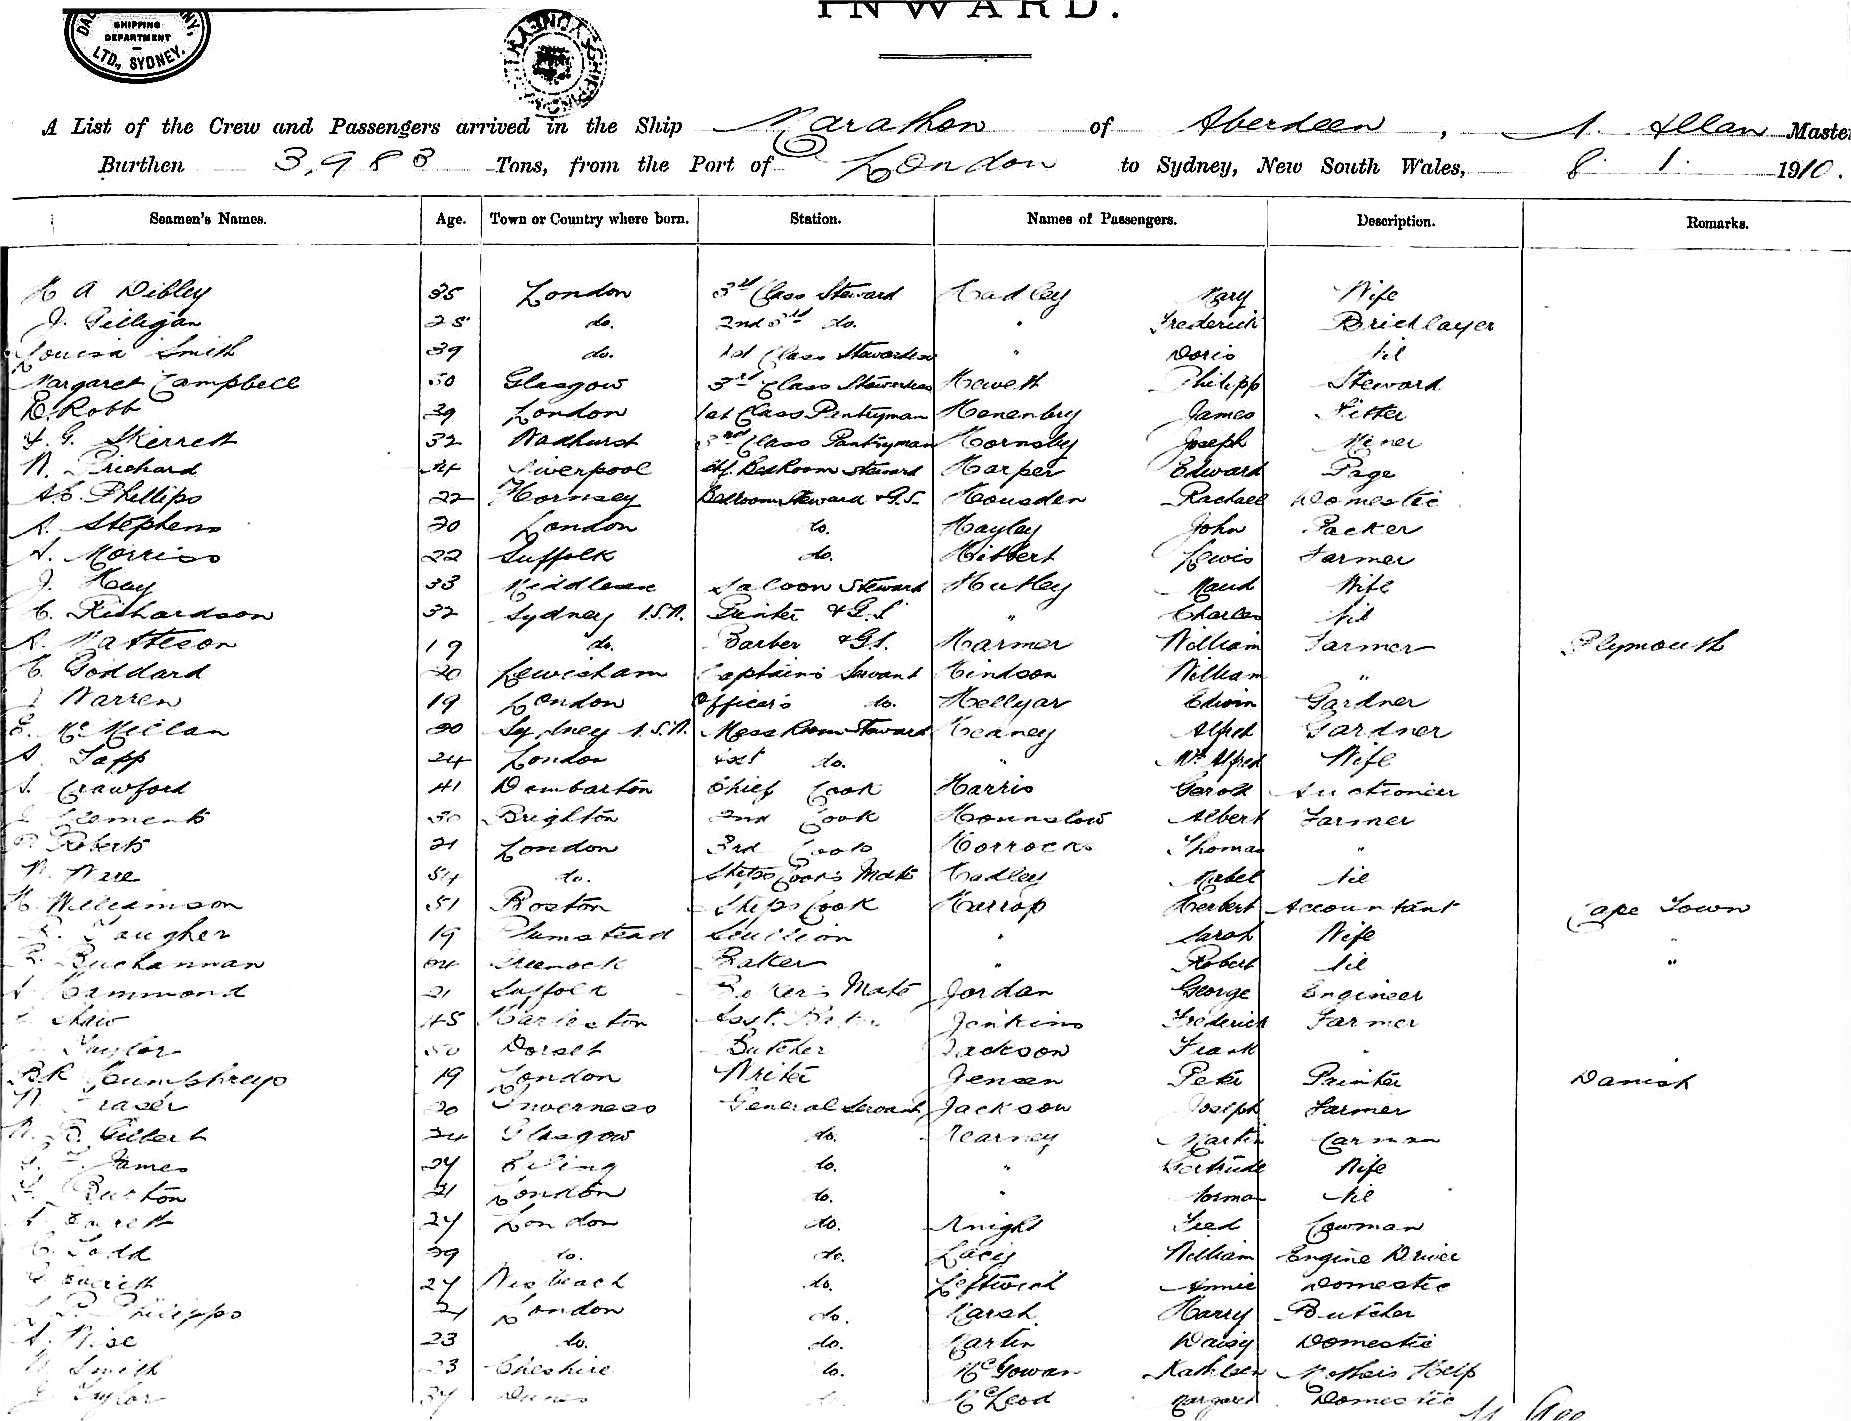 INWARD.
SHIPPING
DEPARTMENT
LTD., SYDNEY.
A List of the Crew and Passengers arrived in the Ship Marathon of Aberdeen, A. Allan Master
Burthen 3,983 Tons, from the Port of London to Sydney, New South Wales, 8. 1. 1910.
Seamen's Names. Age. Town or Country where born. Station. Names of Passengers. Description. Remarks.
H A Dibley 35 London 3rd Class Steward Hadley Mary Wife
J. Gilligan 25 do. 2nd 3rd do. " Frederick Bricklayer
Louisa Smith 39 do. 1st Class Stewardess " Doris Nil
Margaret Campbell 50 Glasgow 3rd Class Stewardess Hewett Philipp Steward
E. Robb 39 London 1st Class Pantryman James Fitter
F. G. Skerrett 32 Wadhurst 3rd Class Pantryman Hornsby Joseph Miner
W. Prichard Liverpool Bed Room Steward Harper Edward Page
A.E. Phillips 22 Hornsey Bedroom Steward & G.S. Housden Rachael Domestic
A. Stephens 20 London do. Hayley John Packer
A. Morriss 22 Suffolk do. Hibbert Lewis Farmer
J. Hay 33 Middlesex Saloon Steward Hutley Maud Wife
C. Richardson 32 Sydney N.S.W. Printer & G.S. " Charles Nil
A. Matteson 19 do. Barber & G.S. Harmer William Farmer Plymouth
C. Goddard 20 Lewisham Captain's Servant Hindson William "
J Warren 19 London Officer's do. Hellyar Edwin Gardner
E. McMillan 20 Sydney N.S.W. Mess Room Steward Heaney Alfred Gardner
A. Tapp 24 London do. " Mrs Alfred Wife
S. Crawford 41 Dumbarton Chief Cook Harris Auctioneer
Clements 30 Brighton 2nd Cook Hounslow Albert Farmer
Roberts 21 London 3rd Cook Horrocks Thomas "
W. 54 do. Ships Cook's Mate Hadley Mabel Nil
H. Williamson 51 Boston Ships Cook Harrop Herbert Accountant Cape Town
19 Plumstead Scullion " Sarah Wife "
Buchannan Greenock Baker " Robert Nil "
Hammond 21 Suffolk Baker's Mate Jordan George Engineer
Shaw 45 Harleston Asst. Jenkins Frederick Farmer
Taylor 50 Dorset Butcher Jackson Frank "
Humphreys 19 London Writer Jensen Peter Printer Danish
W. Fraser 20 Inverness General Servant Jackson Joseph Farmer
W. Gilbert 24 Glasgow do. Kearney Martin Carman
James 24 Ealing do. " Gertrude Wife
Burton 21 London do. " Norman Nil
24 London do. Knight Fred Cowman
C. Todd 39 do. do. Lacey William Engine Driver
Everett 24 Wisbeach do. Leftwich Annie Domestic
Phillipps 21 London do. Marsh Harry Butcher
A. Wise 23 do. do. Martin Daisy Domestic
W Smith 23 Cheshire do. McGowan Kathleen Mothers Help
J. Taylor McLeod Margaret Domestic